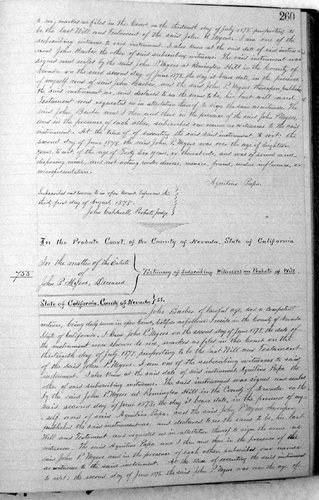 260
to me, marked as filed in this Court on the thirteenth day of July 1875 purporting to
be the last Will and Testament of the said John P. Myers. I am one of the
subscribing witnesses to said instrument. I also knew at the date of said instrument
said John Barbee the other of said subscribing witnesses. The said instrument was
signed and sealed by the said John P. Myers at Remington Hill in the County of
Nevada on the said second day of June 1875, the day it bears date, in the presence
of myself and of said John Barbee and the said John P. Myers thereupon published
the said instrument as, and declared to us the same to be, his last Will and
Testament and requested us in attestation thereof to sign the same as witnesses. The
said John Barbee and I then and there in the presence of the said John P. Myers,
and in the presence of each other, subscribed our names as witnesses to the said
instrument. At the time of executing the said instrument to wit: the
second day of June 1875, the said John P. Myers was over the age of eighteen
years, to wit: of the age of years, or thereabouts, and was of sound and
disposing mind, and not acting under duress, menace, fraud, undue influence, or
misrepresentation.
Agostino Papa.
Subscribed and sworn to in open Court before me this
thirty first day of August 1875.
John Caldwell Probate Judge
In the Probate Court, of the County of Nevada, State of California
755
In the matter of the Estate
of
John P. Myers, Deceased
Testimony of Subscribing Witnesses on Probate of Will
State of California, County of Nevada } SS.
John Barbee of lawful age, and a competent
witness, being duly sworn in open Court, testifies as follows: I reside in the County of Nevada
State of California. I knew John P. Myers on the second day of June 1875, the date of
the instrument now shown to me, marked as filed in this Court on the
thirteenth day of July 1875 purporting to be the last Will and Testament
of the said John P. Myers. I am one of the subscribing witnesses to said
instrument. I also knew at the date of said instrument Agostino Papa the
other of said subscribing witnesses. The said instrument was signed and sealed
by the said John P. Myers at Remington Hill in the County of Nevada on the
said second day of June 1875, the day it bears date, in the presence of my-
self and of said Agostino Papa, and the said John P. Myers thereupon
published the said instrument as, and declared to us the same to be, his last
Will and Testament, and requested us in attestation thereof to sign the same as
witnesses. The said Agostino Papa and I then and there in the presence of the
said John P. Myers and in the presence of each other, subscribed our names
as witnesses to the said instrument. At the time of executing the said instrument
to wit: the second day of June 1875 the said John P. Myers was over the age of